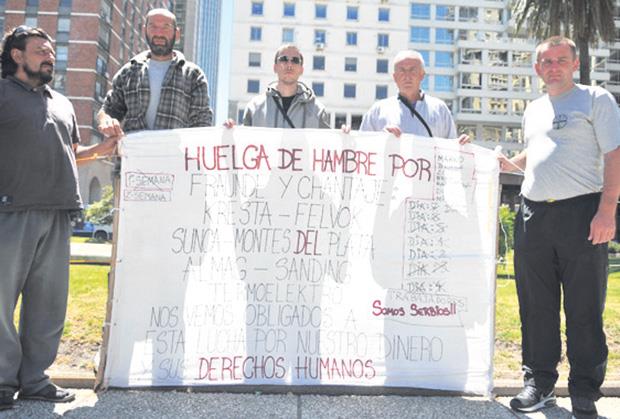 HUELGA DE HAMBRE POR
FRAUNDE Y CHANTAJE
KRESTA - FELVOK
SUNCA - MONTES DEL PLATA
ALMAG - SANDINO
TERMOELEKTRO
NOS VEMOS OBLIGADOS A
ESTA LUCHA POR NUESTRO DINERO
Y SUS DERECHOS HUMANOS
SEMANA
SEMANA
DIA:
DIA:
DIA:
DIA:
DIA:
DIA:
DIA:
TRABAJADORES
SOMOS SERBIOS!!